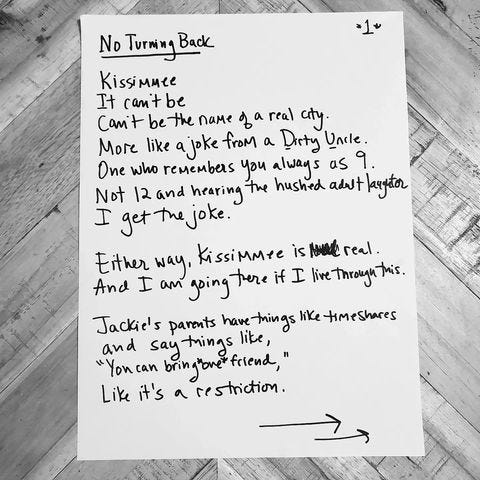 No Turning Back
*1*
Kissimmee
It can't be
Can't be the name of a real city.
More like a joke from a Dirty Uncle.
One who remembers you always as 9.
Not 12 and hearing the hushed adult laughter
I get the joke.
Either way, Kissimmee is real.
And I am going there if I live through this.
Jackie's parents have things like timeshares
and say things like,
"You can bring *one* friend,"
Like it's a restriction.